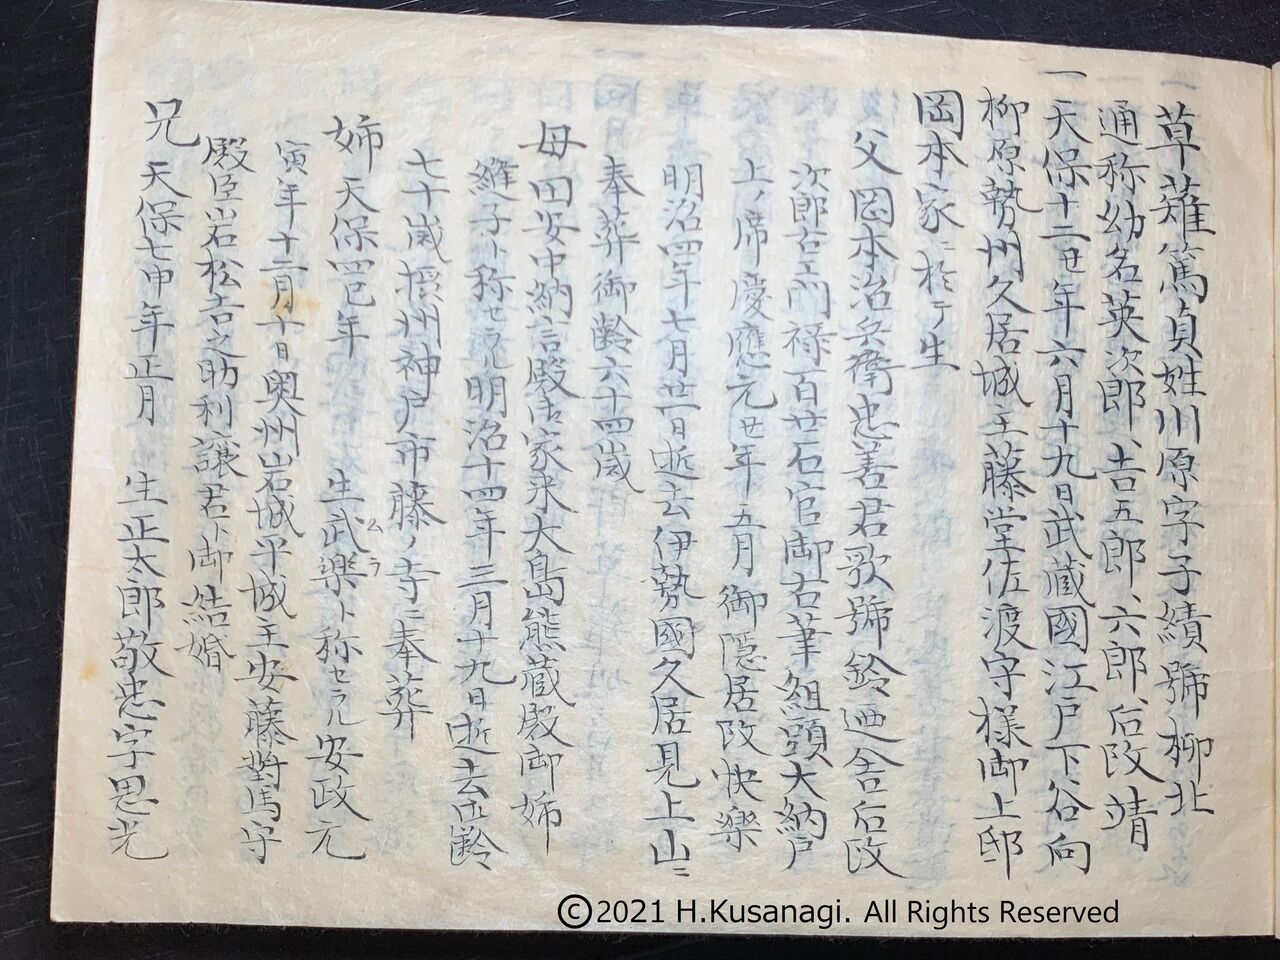 一草薙篤貞姓川原字子績號柳北
通称幼名英次郎、吉五郎、六郎、后改靖
一天保十二丑年六月十九日武蔵國江戸下谷向
柳原勢州久居城主藤堂佐渡守様御上邸
岡本家ニ於テ生
父岡本治兵衛忠善君歌號鈴廼舎后改
次郎右エ門禄百廿石官御右筆組頭大納戸
上ノ席慶應元丑年五月御隠居改快樂
明治四年七月廿一日逝去伊勢國久居見上山ニ
奉葬御齢六十四歳
母田安中納言殿御家来大島熊蔵殿御姉
縫子ト称セラル明治十四年三月十九日逝去御齢
七十歳摂州神戸市藤ノ寺ニ奉葬
姉天保四巳年 生武樂ムラト称セラル安政元
寅年十二月十日奥州岩城平城主安藤對馬守
殿臣岩松吉之助利譲君ト御結婚
兄天保七申年正月 生正太郎敬忠字思光
©2021 H.Kusanagi. All Rights Reserved